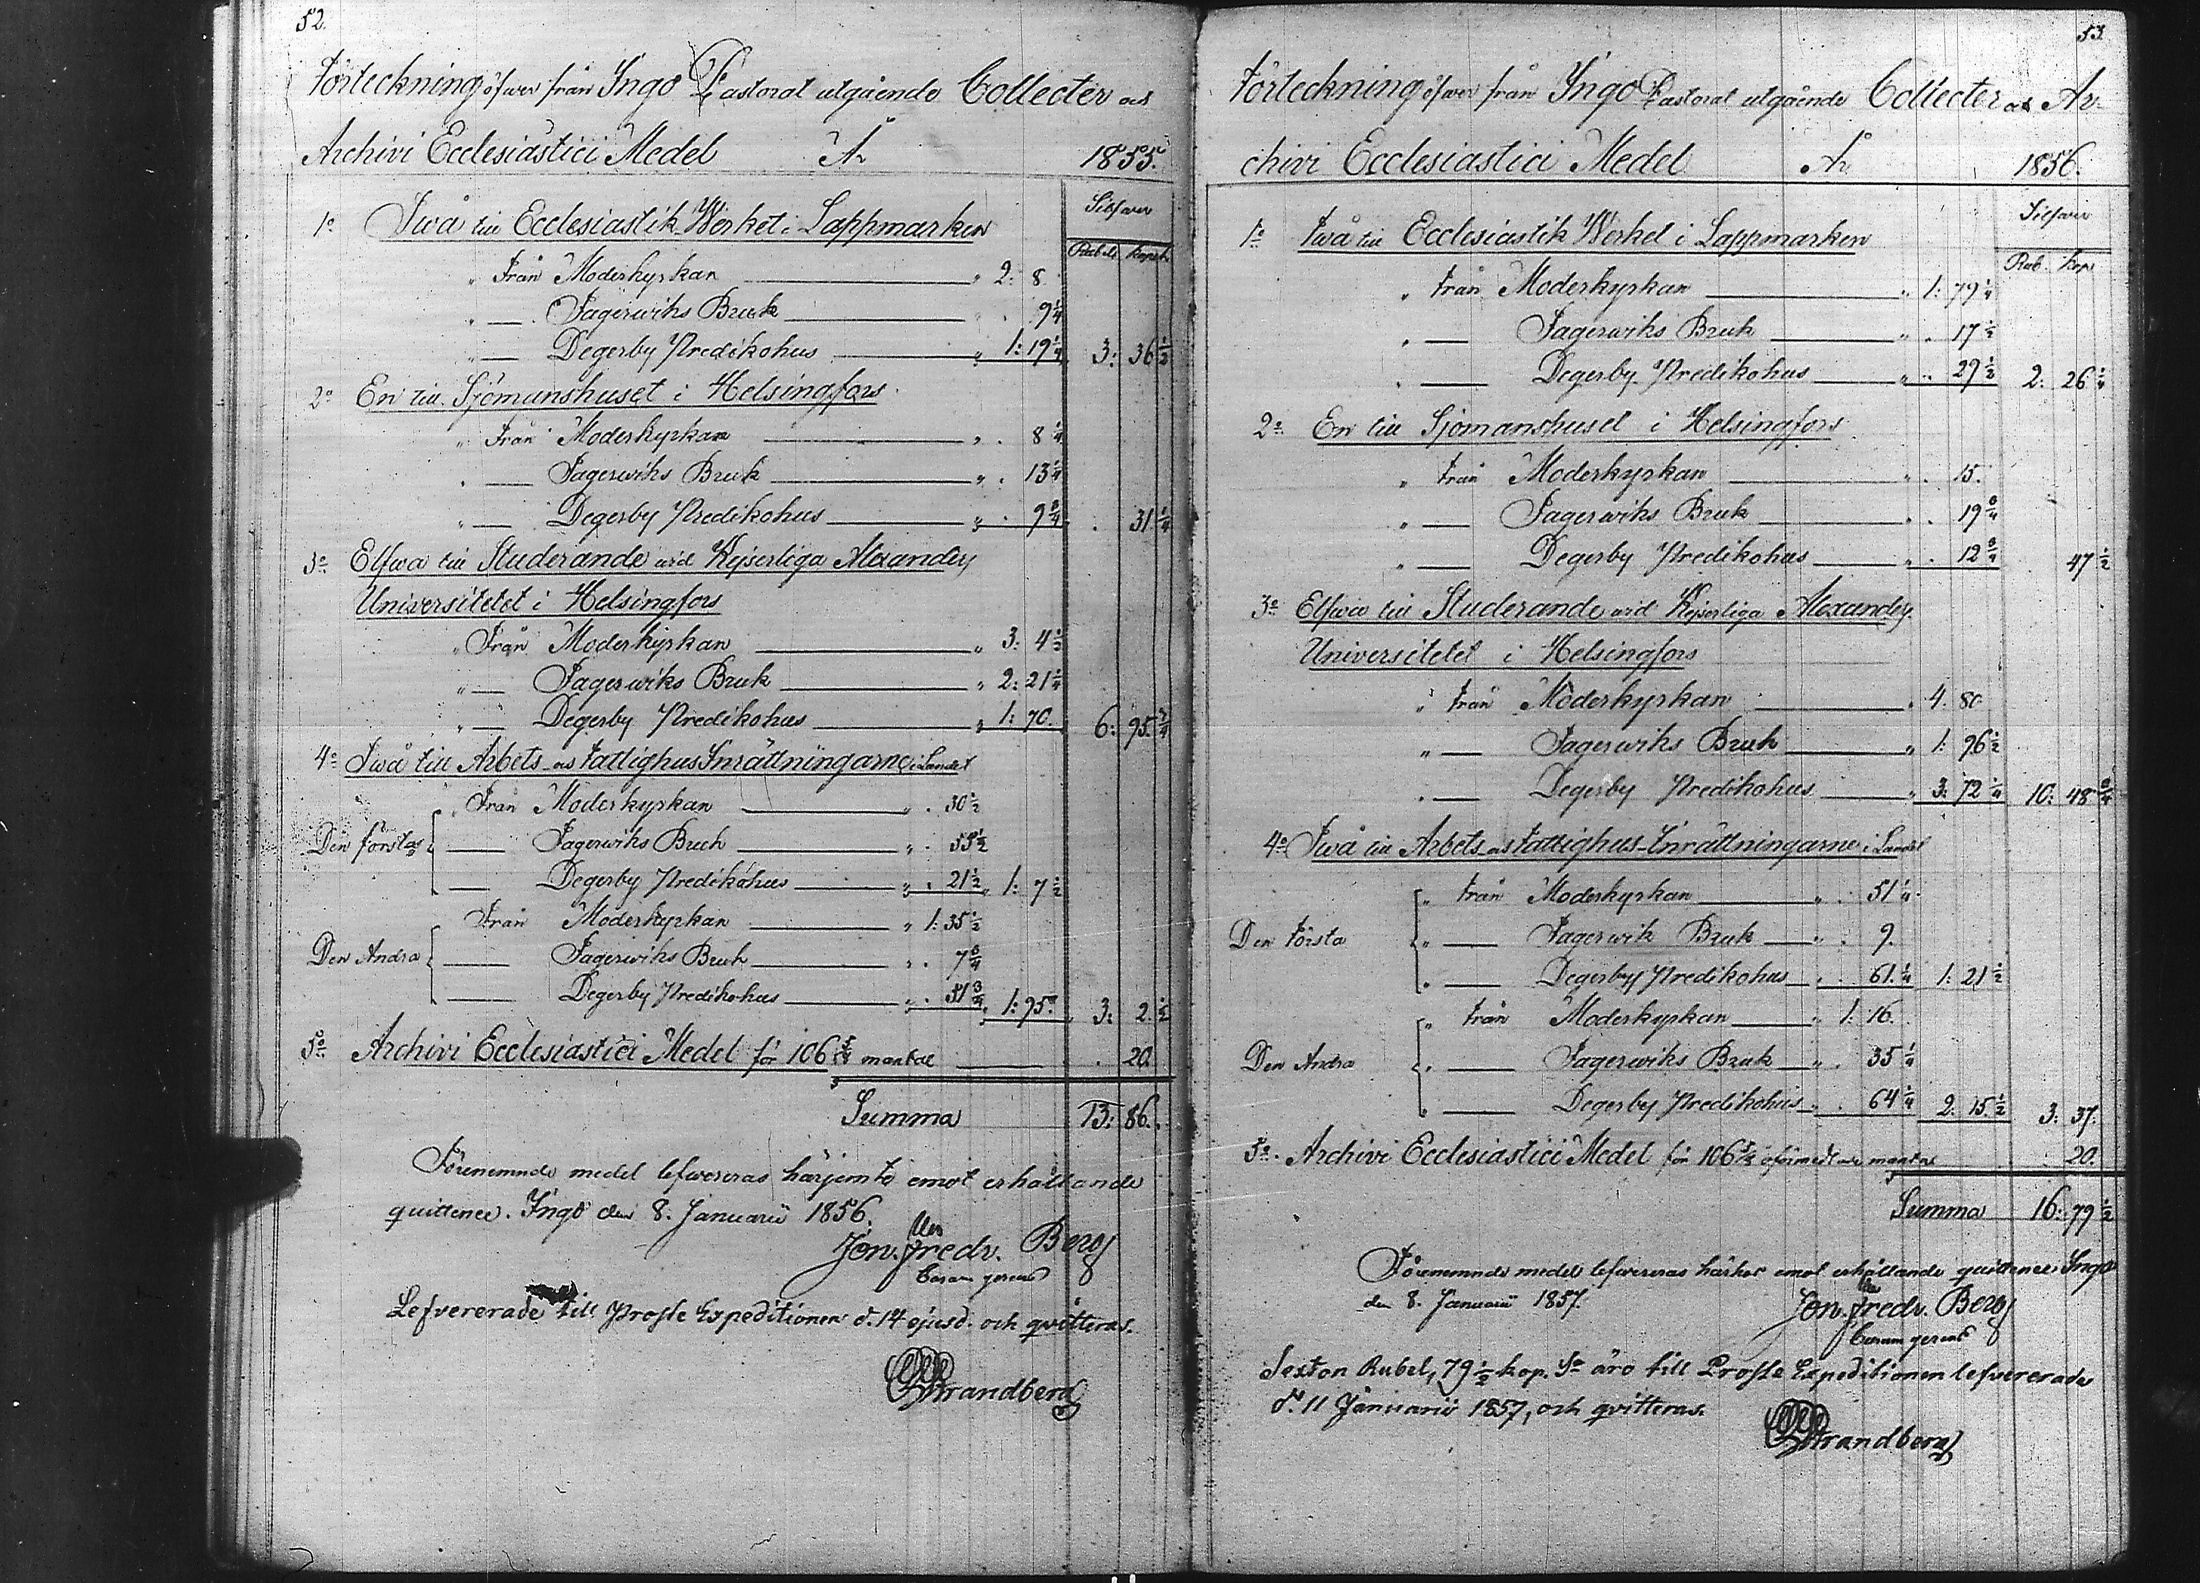 52.
Förteckning öfwer från Ingo Pastorat utgående Collecter och
Archivi Ecclesiastici Medel År 1855.
Silfwer
Rubel Kopek
1o Twå till Ecclesiastik Werket i Lappmarken
" Från Moderkyrkan " 2: 8
" — Fagerwiks Bruk " . 9 1/4
" — Degerby Predikohus " 1: 19 1/4 " 3: 36 1/2
2o En till Sjömanshuset i Helsingfors
" Från Moderkyrkan " . 8 1/4
" — Fagerwiks Bruk " . 13 1/4
" — Degerby Predikohus " . 9 3/4 " . 31 1/4
3o Elfwa till Studerande wid Kejserliga Alexanders
Universitetet i Helsingfors
" Från Moderkyrkan " 3: 4 1/2
" — Fagerwiks Bruk " 2: 21 1/4
" — Degerby Predikohus " 1: 70. 6: 95 3/4
4o Twå till Arbets och Fattighus Inrättningarne i Landet
Från Moderkyrkan " . 30 1/2
Den första — Fagerwiks Bruk " . 55 1/2
— Degerby Predikohus " . 21 1/2 " 1: 7 1/2
Från Moderkyrkan " 1: 35 1/2
Den Andra — Fagerwiks Bruk " . 7 3/4
— Degerby Predikohus " . 51 3/4 " 1: 95. " 3: 2 1/2
5o Archivi Ecclesiastici Medel för 106 mantal . 20.
Summa 13: 86.
Förenemnde medel lefwereras härjemte emot erhållande
quittence. Ingo den 8. Januarii 1856.
Jon. Fredr. Berg
Curam gerens
Lefvererade till Prosts Expeditionen d. 14 ejusd. och qvitteras.
Strandberg
53.
Förteckning öfwer från Ingo Pastorat utgående Collecter och Ar-
chivi Ecclesiastici Medel År 1856.
Silfwer
Rub. Kop.
1o Twå till Ecclesiastik Werket i Lappmarken
" från Moderkyrkan " 1: 79 1/4
" — Fagerwiks Bruk " . 17 1/2
" — Degerby Predikohus " . 29 1/2 2: 26 1/4
2o En till Sjömanshuset i Helsingfors
" från Moderkyrkan " . 15.
" — Fagerwiks Bruk " . 19 3/4
" — Degerby Predikohus " . 12 3/4 47 1/2
3o Elfwa till Studerande wid Kejserliga Alexanders
Universitetet i Helsingfors
" från Moderkyrkan " 4: 80
" — Fagerwiks Bruk " 1: 96 1/2
" — Degerby Predikohus " 3: 72 1/4 10: 48 3/4
4o Twå till Arbets och Fattighus-Inrättningarne i Landet
" från Moderkyrkan " . 51 1/4
Den första " — Fagerwik Bruk " . 9.
" — Degerby Predikohus " . 61 1/4 1: 21 1/2
" från Moderkyrkan " 1: 16.
Den Andra " — Fagerwiks Bruk " . 35 1/4
" — Degerby Predikohus " . 64 1/4 2: 15 1/2 3: 37.
5o Archivi Ecclesiastici Medel för 106 oförmedlade mantal 20.
Summa 16: 79 1/2
Förenemnde medel lefwereras härhos emot erhållande quittence. Ingo
den 8. Januarii 1857.
Jon. Fredr. Berg
Curam gerens
Sexton Rubel, 79 1/2 kop. Sr äro till Prosts Expeditionen lefvererade
d. 11 Januarii 1857, och qvitteras.
Strandberg